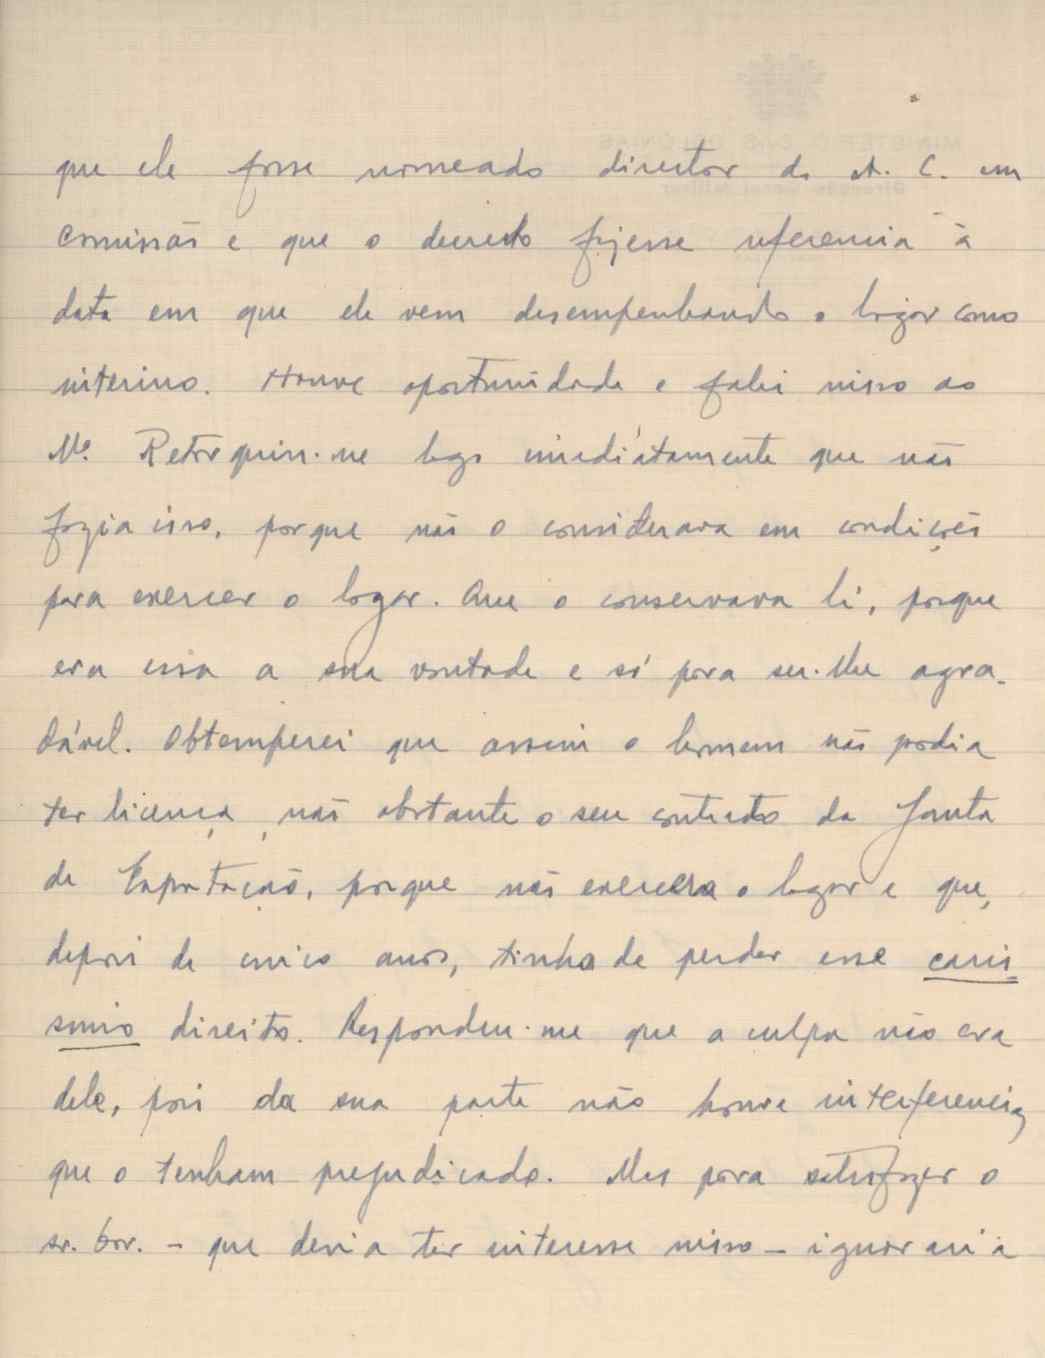 que ele fosse nomeado director do A. C. em
comissão e que o decreto fizesse referencia à
data em que ele vem desempenhando o logar como
interino. Houve oportunidade e falei nisso ao
Mº. Retorquiu-me logo imediátamente que não
fazia isso, porque não o considerava em condições
para exercer o logar. Que o conservava lá, porque
era essa a sua vontade e só para ser-lhe agra-
dável. Obtemperei que assim o homem não podia
ter licença, não obstante o seu contrato da Junta
de Exportação, porque não exercera o logar e que,
depois de cinco anos, tinha de perder esse caris
simo direito. Respondeu-me que a culpa não era
dele, pois da sua parte não houve interferencias
que o tenham prejudicado. Mas para satisfazer o
sr. Gov. - que devia ter interesse nisso - ignoraria